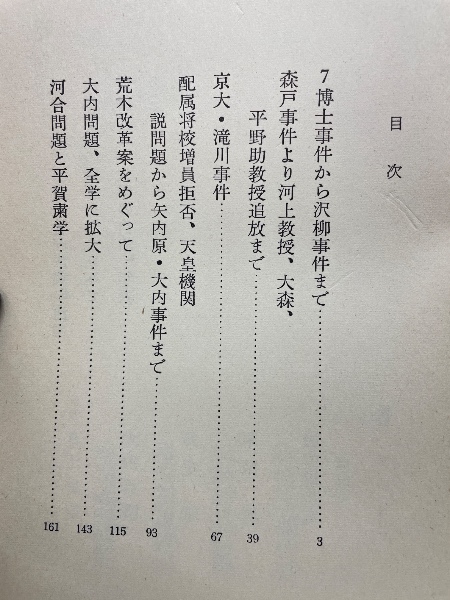 目次
7博士事件から沢柳事件まで……………3
森戸事件より河上教授、大森、
平野助教授追放まで……………39
京大・滝川事件……………67
配属将校増員拒否、天皇機関
説問題から矢内原・大内事件まで……………93
荒木改革案をめぐって……………115
大内問題、全学に拡大……………143
河合問題と平賀粛学……………161